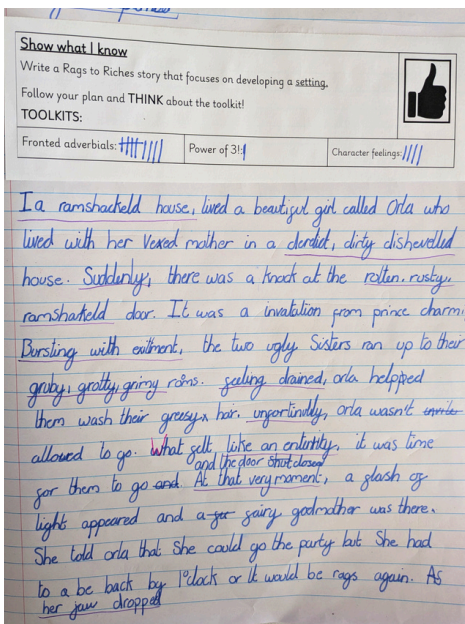 Show what I know
Write a Rags to Riches story that focuses on developing a setting.
Follow your plan and THINK about the toolkit!
TOOLKITS:
Fronted adverbials:
Power of 3!:
Character feelings:
In a ramshackeld house, lived a beautiful girl called Orla who
lived with her vexed mother in a derdiet, dirty dishevelled
house. Suddenly, there was a knock at the rotten, rusty,
ramshakeld door. It was a invatation from prince charmi
Bursting with exitment, the two ugly Sisters ran up to their
gruby, grotty, grimy rooms. feeling drained, orla helpped
them wash their greesy hair. unfortinully, orla wasn't invite
allowed to go. What felt like an entertity, it was time
and the door shut closed
for them to go and. At that very moment, a flash of
light appeared and a fer fairy godmother was there.
She told orla that She could go the party but She had
to a be back by 1 o'clock or It would be rags again. As
her jaw dropped